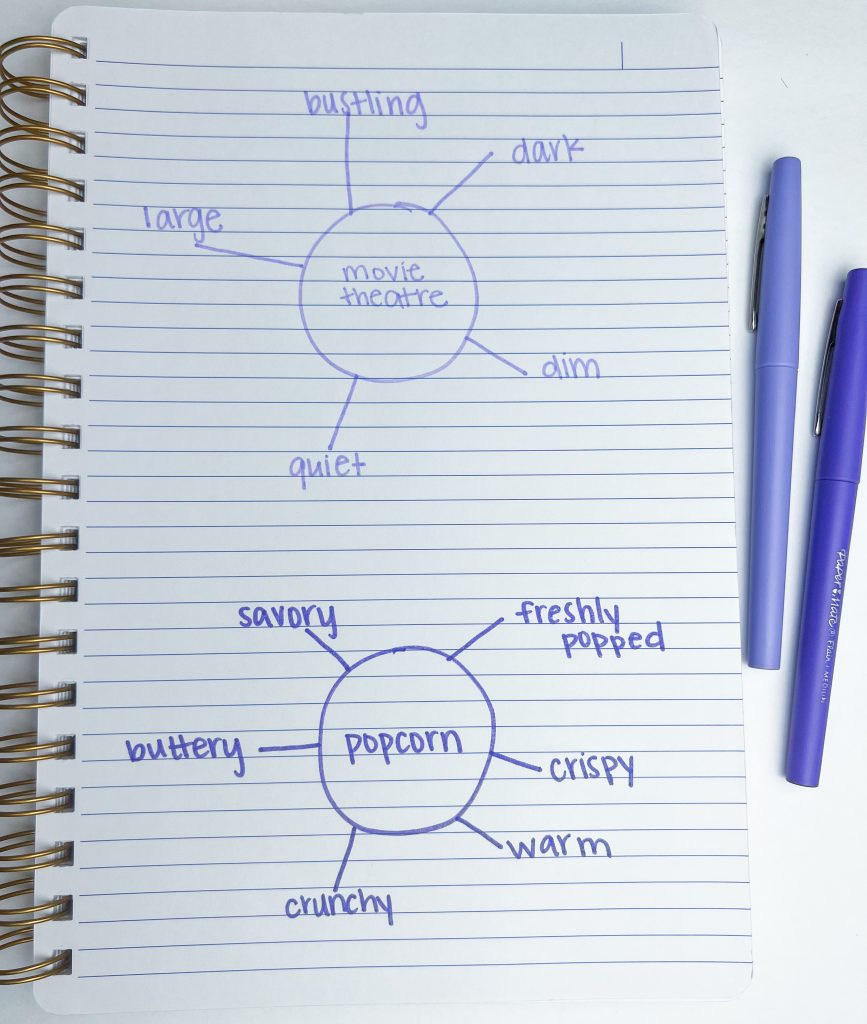 bustling
dark
large
movie
theatre
dim
quiet
savory
freshly
popped
buttery
popcorn
crispy
warm
crunchy
Paper:Mate
Flair
MEDIUM